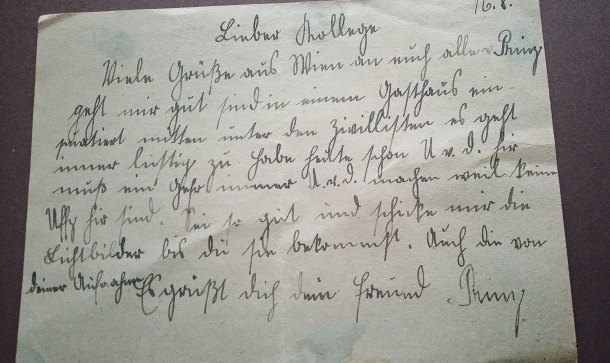 16.8.
Lieber Kollege
Viele Grüße aus Wien an euch alle v. Prinz
geht mir gut sind in einem Gasthaus ein-
quatiert mitten unter den Zivillisten es geht
immer lustig zu. Habe heute schon U.v.d. hir
muß ein Gefr immer U.v.d. machen weil keine
Uffz hir sind. Sei so gut und schike mir die
Lichtbilder bis du sie bekommst. Auch die von
deiner Aufnahme Es grüßt dich dein Freund Prinz